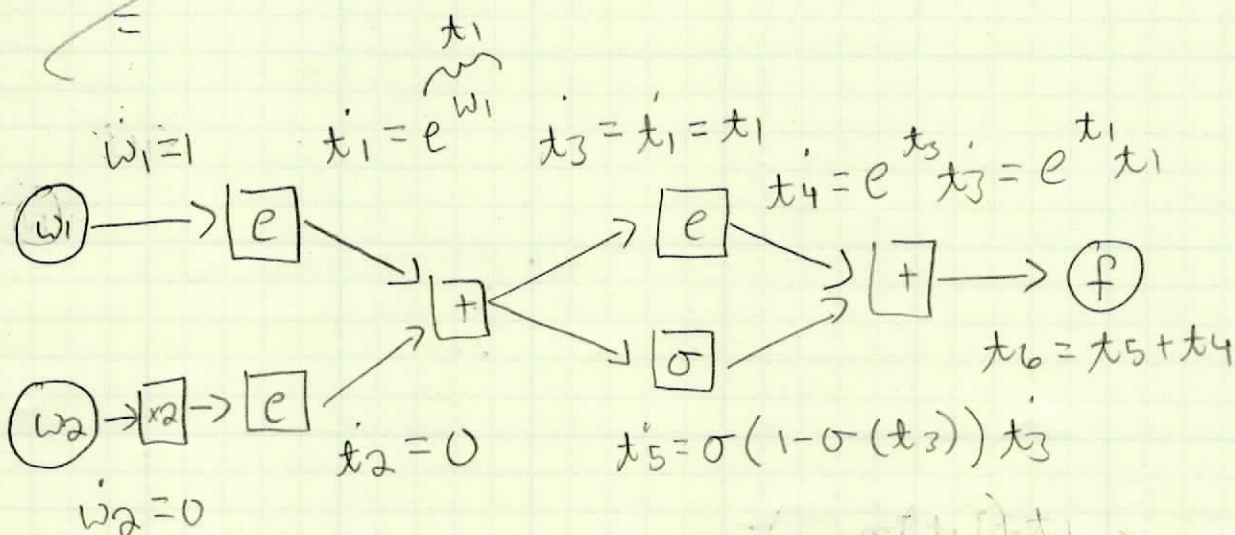 =
t1
ẇ1=1 ṫ1 = e^w1 ṫ3 = ṫ1 = t1
ṫ4 = e^t3 ṫ3 = e^t1 t1
w1 e e + f
+
σ
t6 = t5 + t4
w2 ×2 e
ṫ2 = 0 ṫ5 = σ(1-σ(t3)) ṫ3
ẇ2=0